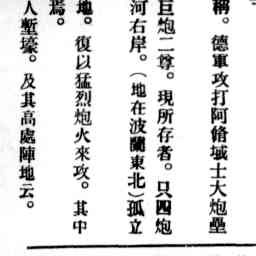 稱。德軍攻打阿脩域士大炮壘
巨炮二尊。現所存者。只四炮
河右岸。（地在波蘭東北）孤立
地。復以猛烈炮火來攻。其中
焉。
人塹壕。及其高處陣地云。